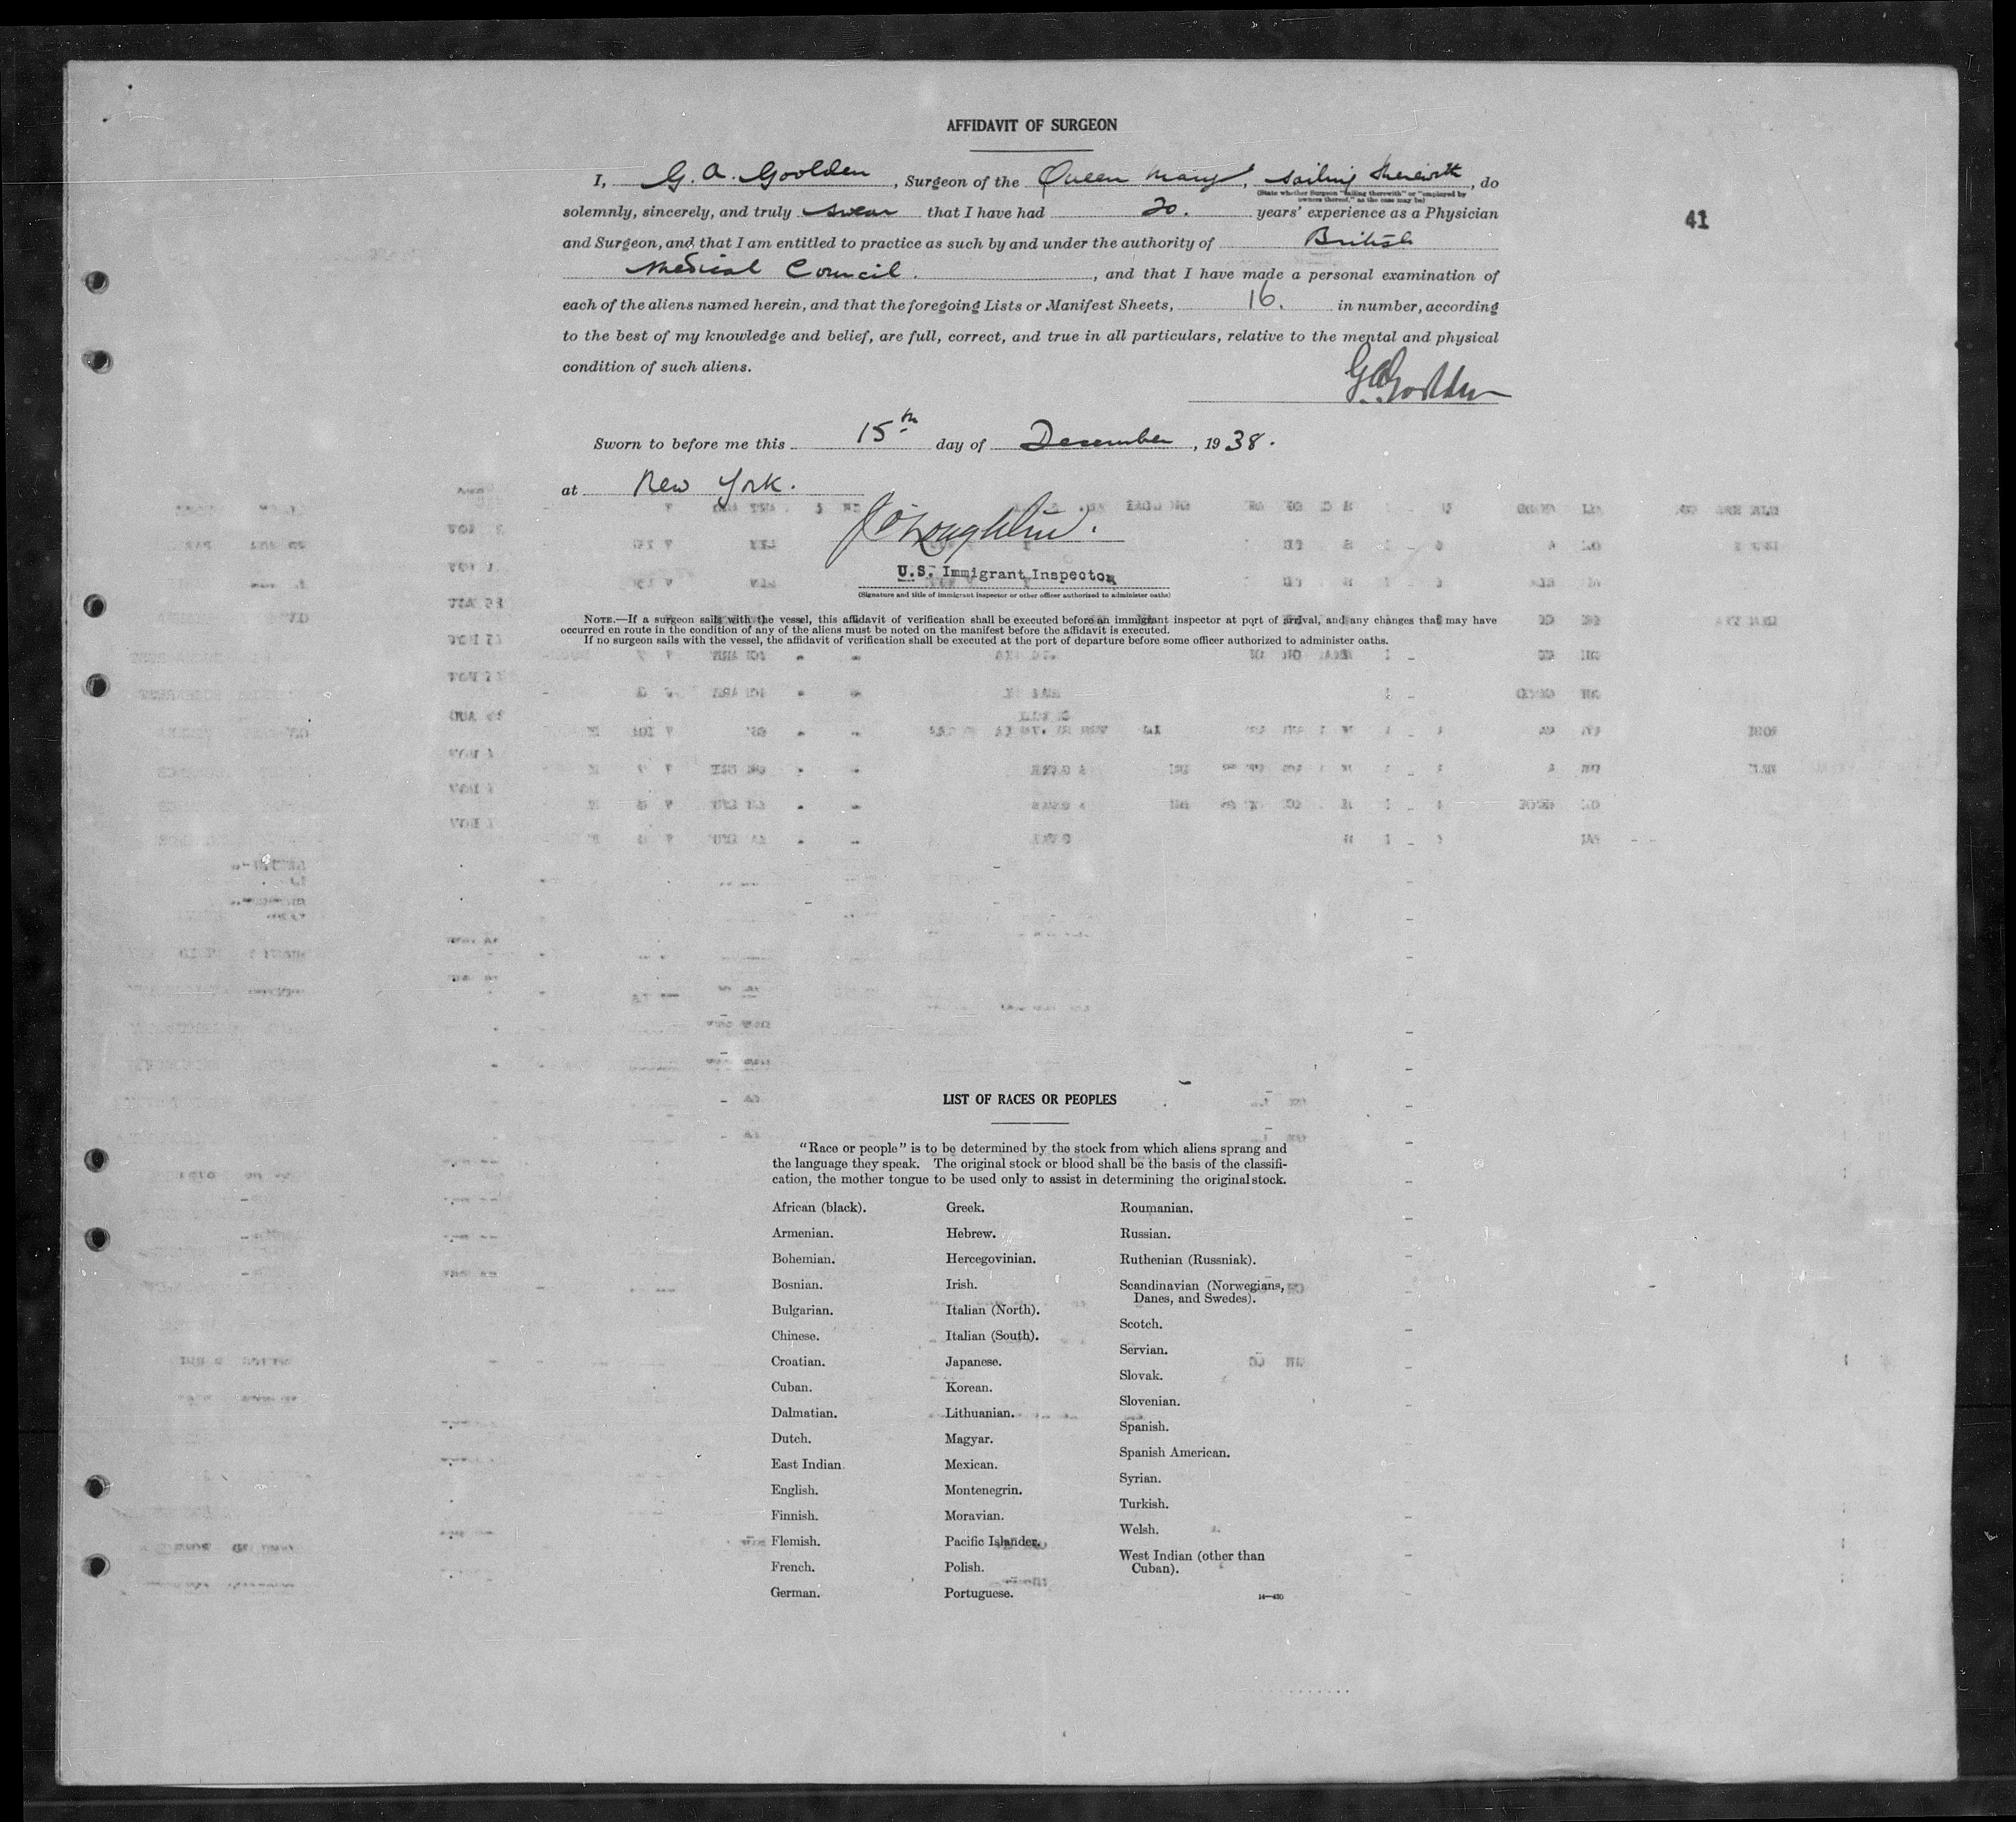 AFFIDAVIT OF SURGEON
I, G. A. Goolden, Surgeon of the Queen Mary, sailing therewith, do
(State whether Surgeon "sailing therewith" or "employed by
owners thereof," as the case may be)
solemnly, sincerely, and truly swear that I have had 20. years' experience as a Physician
41
and Surgeon, and that I am entitled to practice as such by and under the authority of British
Medical Council., and that I have made a personal examination of
each of the aliens named herein, and that the foregoing Lists or Manifest Sheets, 16. in number, according
to the best of my knowledge and belief, are full, correct, and true in all particulars, relative to the mental and physical
condition of such aliens.
G. A. Goolden
Sworn to before me this 15th day of December, 1938.
at New York.
J O'Loughlin.
U.S. Immigrant Inspector
(Signature and title of immigrant inspector or other officer authorized to administer oaths)
NOTE.—If a surgeon sails with the vessel, this affidavit of verification shall be executed before an immigrant inspector at port of arrival, and any changes that may have
occurred en route in the condition of any of the aliens must be noted on the manifest before the affidavit is executed.
If no surgeon sails with the vessel, the affidavit of verification shall be executed at the port of departure before some officer authorized to administer oaths.
LIST OF RACES OR PEOPLES
"Race or people" is to be determined by the stock from which aliens sprang and
the language they speak. The original stock or blood shall be the basis of the classifi-
cation, the mother tongue to be used only to assist in determining the original stock.
African (black).
Armenian.
Bohemian.
Bosnian.
Bulgarian.
Chinese.
Croatian.
Cuban.
Dalmatian.
Dutch.
East Indian
English.
Finnish.
Flemish.
French.
German.
Greek.
Hebrew.
Hercegovinian.
Irish.
Italian (North).
Italian (South).
Japanese.
Korean.
Lithuanian.
Magyar.
Mexican.
Montenegrin.
Moravian.
Pacific Islander.
Polish.
Portuguese.
Roumanian.
Russian.
Ruthenian (Russniak).
Scandinavian (Norwegians,
Danes, and Swedes).
Scotch.
Servian.
Slovak.
Slovenian.
Spanish.
Spanish American.
Syrian.
Turkish.
Welsh.
West Indian (other than
Cuban).
14—430